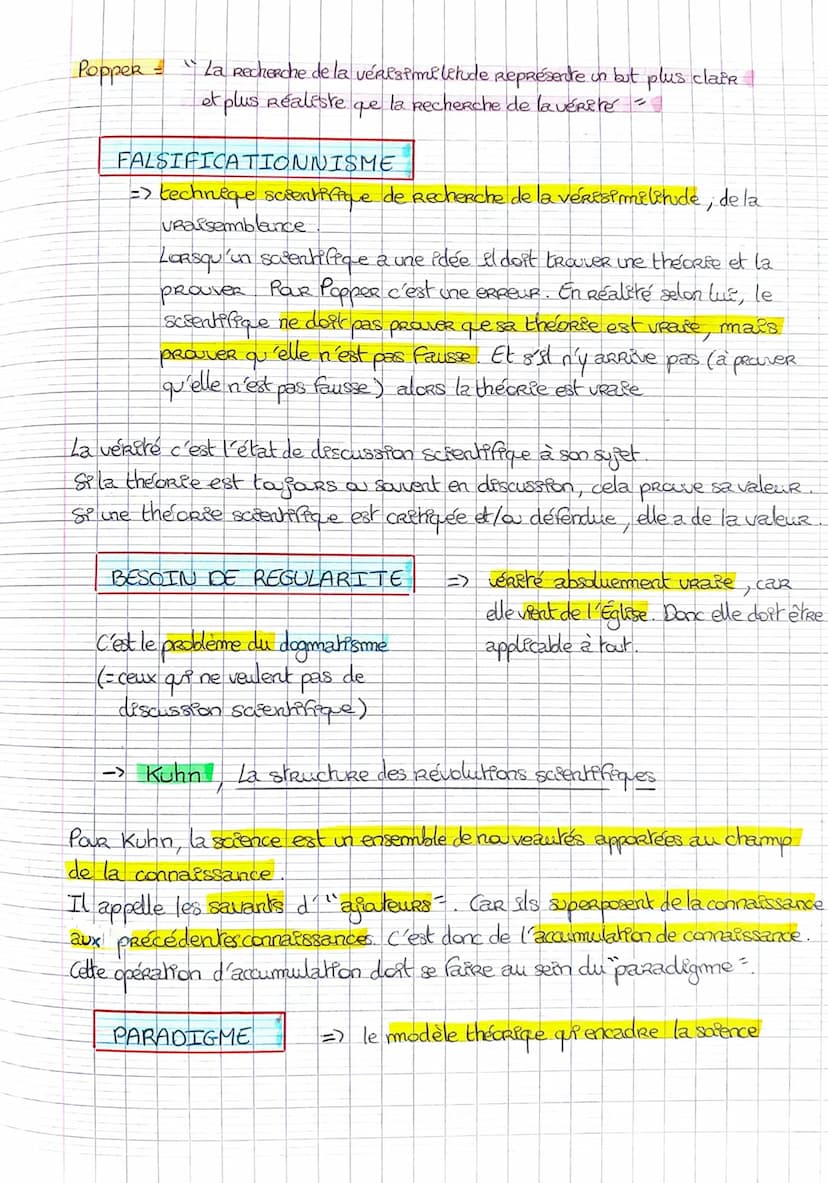 Popper = " La recherche de la vérisimilitude représente un but plus clair
et plus réaliste que la recherche de la vérité "
FALSIFICATIONNISME
=> technique scientifique de recherche de la vérisimilitude, de la
vraisemblance.
Lorsqu'un scientifique a une idée il doit trouver une théorie et la
prouver. Pour Popper c'est une erreur. En réalité selon lui, le
scientifique ne doit pas prouver que sa théorie est vraie, mais
prouver qu'elle n'est pas fausse. Et s'il n'y arrive pas (à prouver
qu'elle n'est pas fausse) alors la théorie est vraie
La vérité c'est l'état de discussion scientifique à son sujet.
Si la théorie est toujours ou souvent en discussion, cela prouve sa valeur.
Si une théorie scientifique est critiquée et/ou défendue, elle a de la valeur.
BESOIN DE REGULARITE => vérité absoluement vraie, car
elle vient de l'Église. Donc elle doit être
applicable à tout.
C'est le problème du dogmatisme
(= ceux qui ne veulent pas de
discussion scientifique)
-> Kuhn, La structure des révolutions scientifiques
Pour Kuhn, la science est un ensemble de nouveautés apportées au champ
de la connaissance.
Il appelle les savants d'"ajouteurs". Car ils superposent de la connaissance
aux précédentes connaissances. C'est donc de l'accumulation de connaissance.
Cette opération d'accumulation doit se faire au sein du "paradigme".
PARADIGME => le modèle théorique qui encadre la science